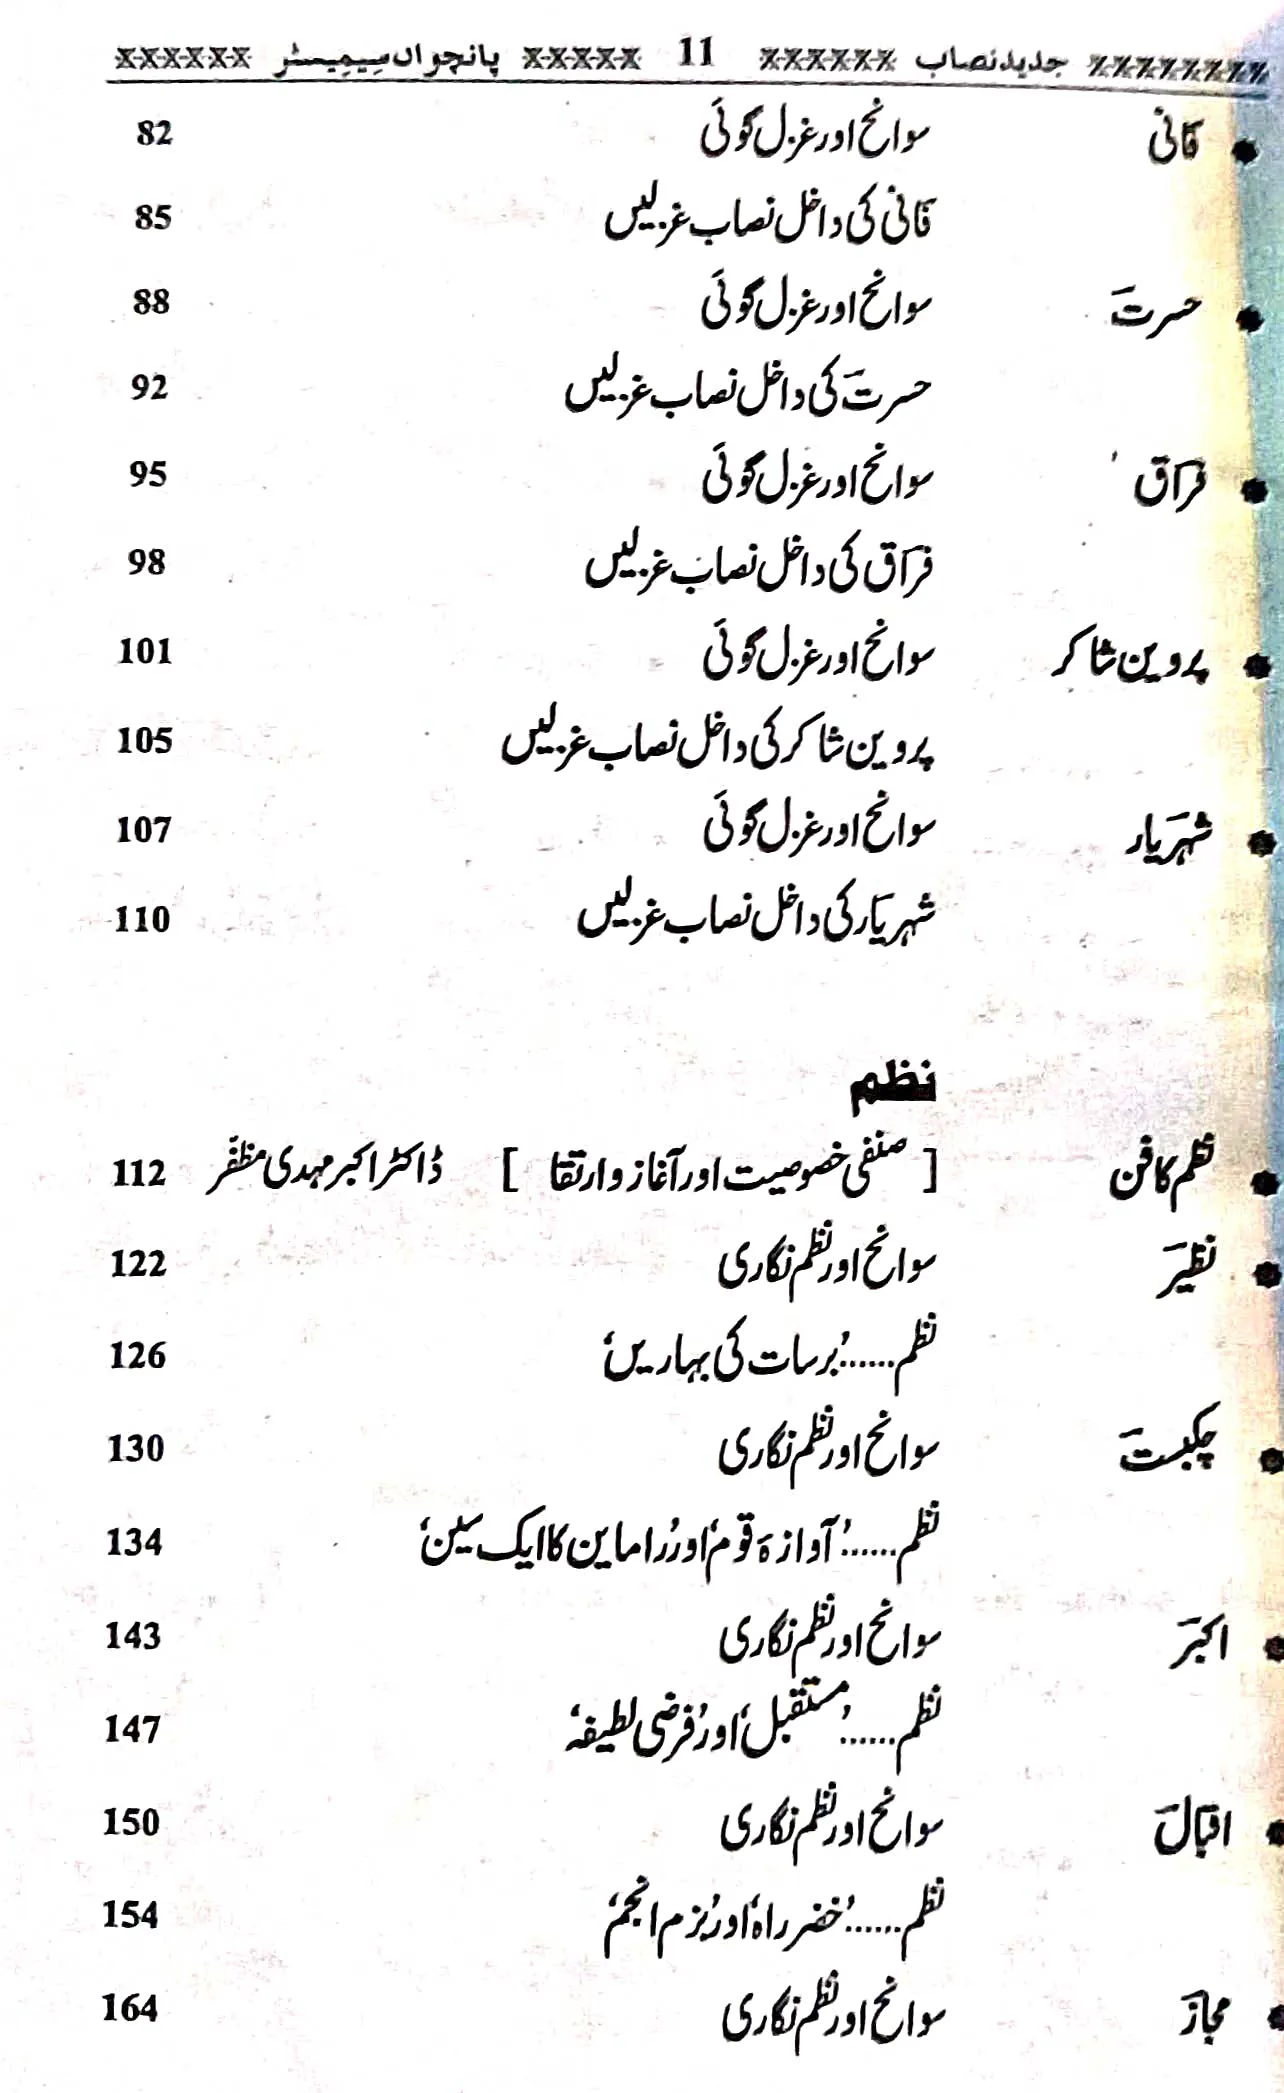 جدید نصاب 11 پانچواں سیمیسٹر
فانی سوانح اور غزل گوئی 82
فانی کی داخل نصاب غزلیں 85
حسرتؔ سوانح اور غزل گوئی 88
حسرتؔ کی داخل نصاب غزلیں 92
فراقؔ سوانح اور غزل گوئی 95
فراقؔ کی داخل نصاب غزلیں 98
پروین شاکر سوانح اور غزل گوئی 101
پروین شاکر کی داخل نصاب غزلیں 105
شہریارؔ سوانح اور غزل گوئی 107
شہریارؔ کی داخل نصاب غزلیں 110
نظم
نظم کا فن [ صنفی خصوصیت اور آغاز و ارتقا ] ڈاکٹر اکبر مہدی مظفّر 112
نظیرؔ سوانح اور نظم نگاری 122
نظم......‘برسات کی بہاریں’ 126
چکبستؔ سوانح اور نظم نگاری 130
نظم......‘آوازۂ قوم’ اور ‘راماین کا ایک سین’ 134
اکبرؔ سوانح اور نظم نگاری 143
نظم......‘مستقبل’ اور ‘فرضی لطیفہ’ 147
اقبالؔ سوانح اور نظم نگاری 150
نظم......‘خضر راہ’ اور ‘بزم انجم’ 154
مجازؔ سوانح اور نظم نگاری 164